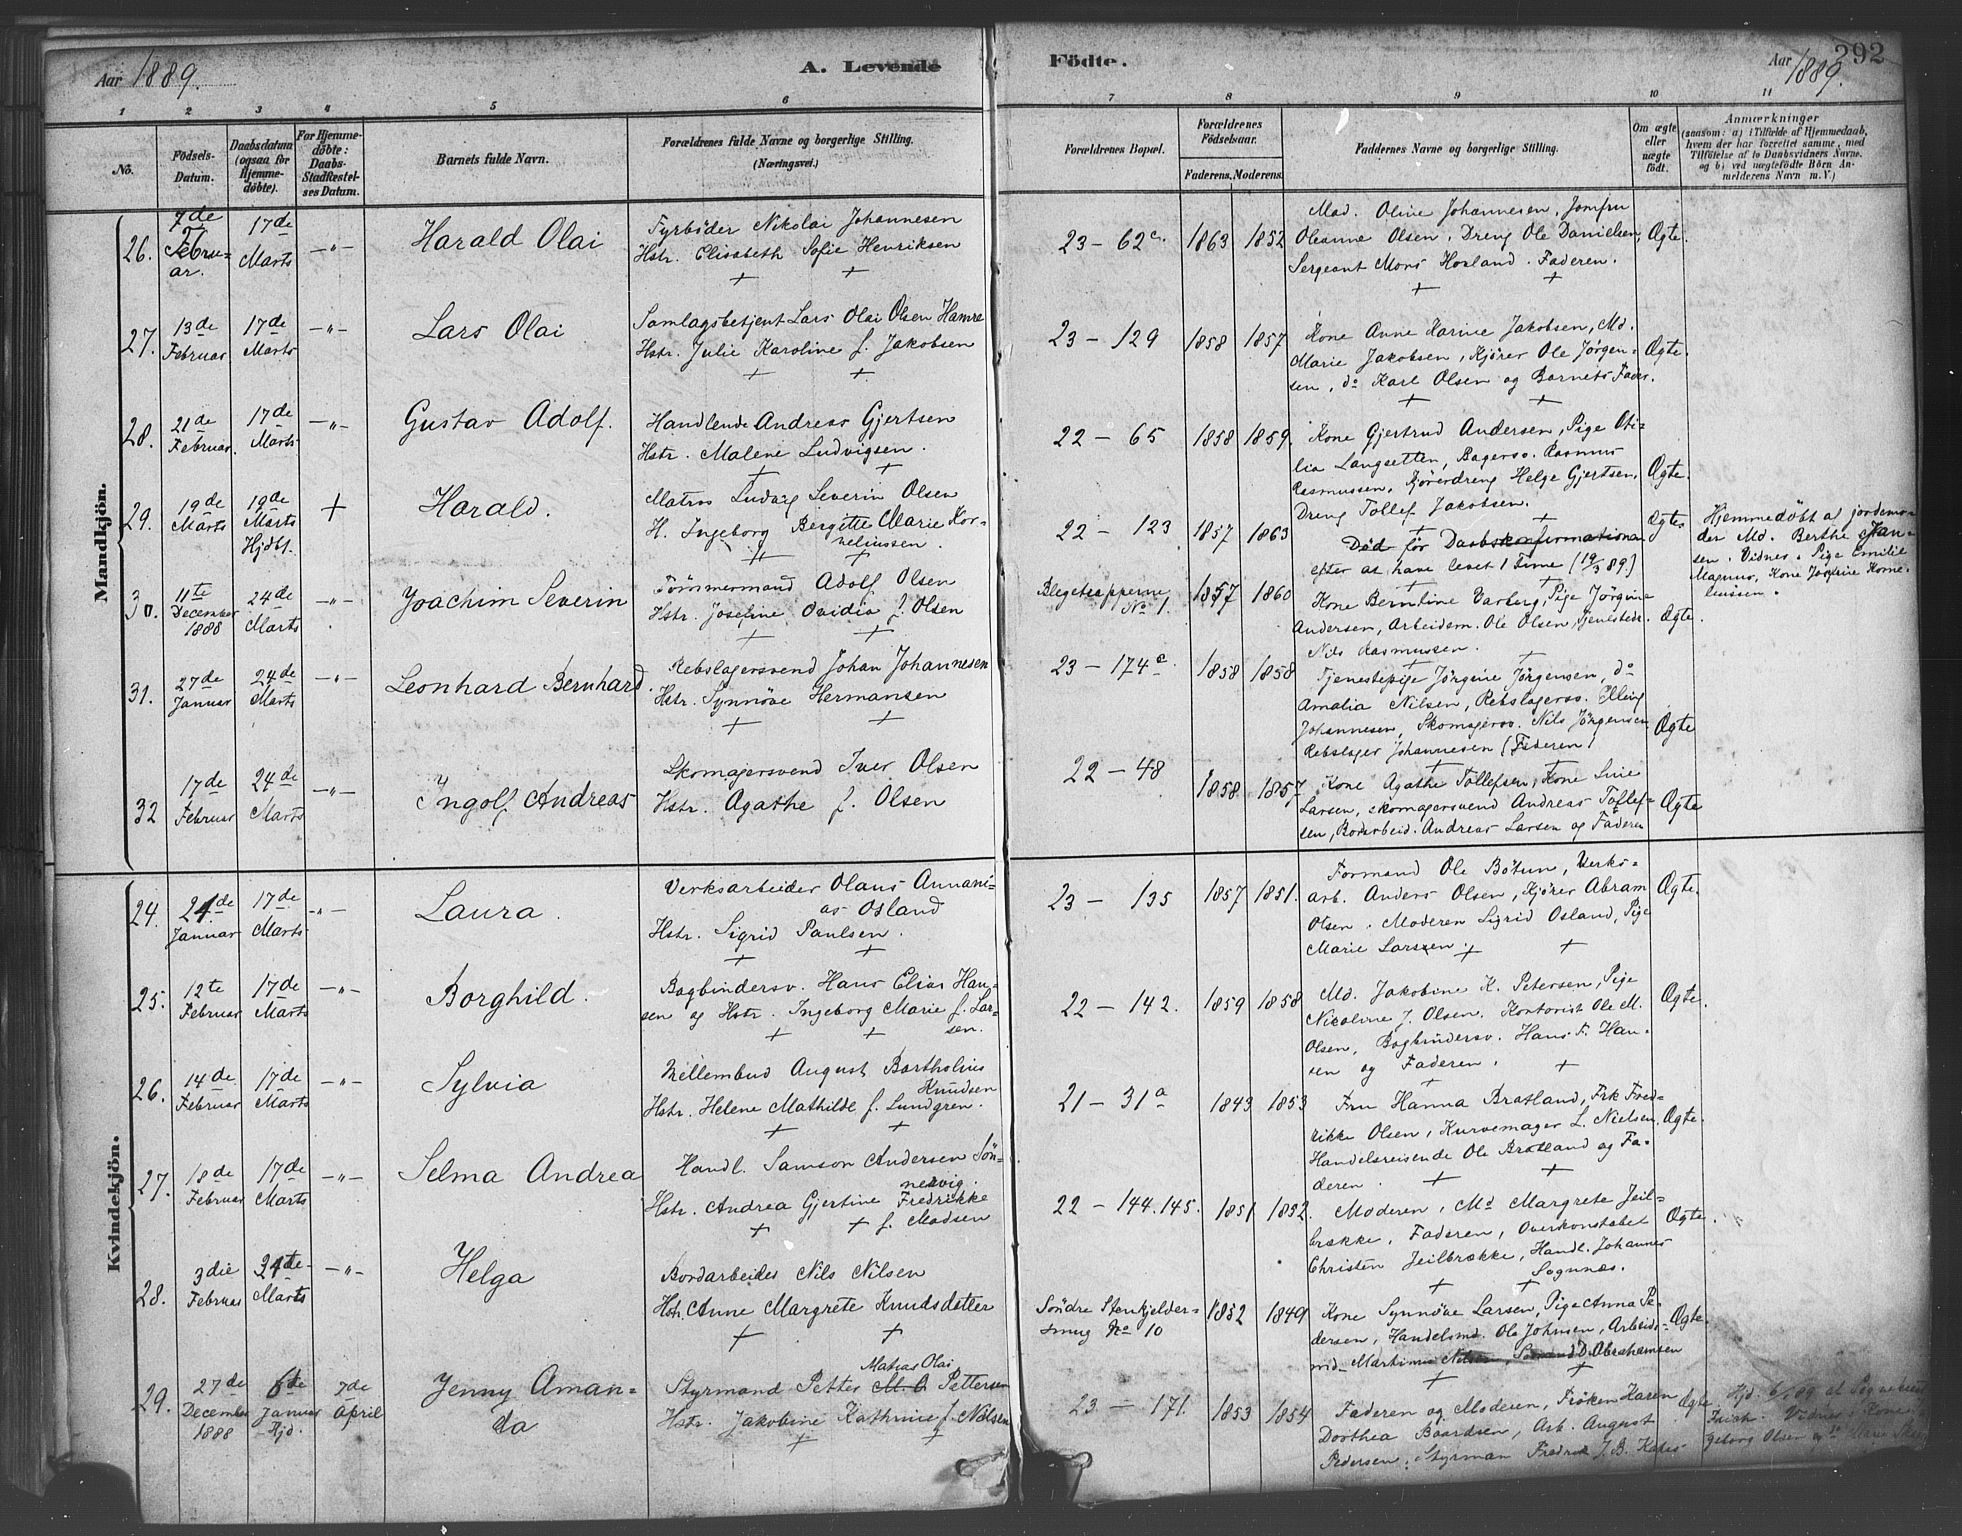 Aar 1889.
A. Levende
Födte.
Aar 1889.
292
1 2 3 4 5 6 7 8 9 10 11
No.
Födsels-
Datum.
Daabsdatum
(ogsaa for
Hjemme-
döbte).
For Hjemme-
döbte:
Daabs-
Stadfæstel-
ses Datum.
Barnets fulde Navn.
Forældrenes fulde Navne og borgerlige Stilling.
(Næringsvei.)
Forældrenes Bopæl.
Forældrenes
Födselsaar.
Faderens. Moderens.
Faddernes Navne og borgerlige Stilling.
Om ægte
eller
uægte
födt.
Anmærkninger
(saasom: a) i Tilfælde af Hjemmedaab,
hvem der har forrettet samme, med
Tilföielse af to Daabsvidners Navne,
og b) ved uægtefödte Börn An-
melderens Navn m. V.)
Mandkjön.
26.
7de
Febru-
ar.
17de
Marts
-"-
Harald Olai
Fyrbøder Nikolai Johannesen
Hstr. Elisabeth Sofie Henriksen
23 - 62c.
1863
1852
Mad. Oline Johannesen, Jomfru
Oleanne Olsen, Dreng Ole Danielsen,
Sergeant Mons Hovland. Faderen.
Ægte.
27.
13de
Februar
17de
Marts
-"-
Lars Olai
Samlagsbetjent Lars Olai Olsen Hamre
Hstr. Julie Karoline f. Jakobsen
23 - 129
1858
1857
Kone Anne Karine Jakobsen, Md.
Marie Jakobsen, Kjører Ole Jörgen-
sen, do Karl Olsen og Barnets Fader.
Ægte.
28.
21de
Februar.
17de
Marts
-"-
Gustav Adolf.
Handlende Andreas Gjertsen
Hstr. Malene Ludvigsen.
22 - 65
1858
1859.
Kone Gjertrud Andersen, Pige Oti-
lia Langsetten, Bagersv. Rasmus
Rasmussen, Kjörerdreng Helge Gjertsen,
Dreng Tollef Jakobsen.
Ægte.
29.
19de
Marts
19de
Marts
Hjdbt.
+
Harald.
Matros Ludvig Severin Olsen
H. Ingeborg Bergitte Marie Kor-
neliussen.
22 - 123
1857
1863
Død før Daabskonfirmationen
efter at have levet 1 Time (19/3 89)
Ægte
Hjemmedöbt af Jordemo-
der Md. Berthe Han-
sen. Vidner. Pige Emilie
Magnus, Kone Jokine Korne-
liussen.
30.
11te
December
1888
24de
Marts
-"-
Joachim Severin
Tømmermand Adolf Olsen
Hstr. Josefine Ovidia f. Olsen
No 1.
1857
1860
Kone Berntine Varberg, Pige Jörgine
Andersen, Arbeidsm. Ole Olsen, Tjenestedr.
Nils Rasmussen.
Ægte.
31.
27de
Januar
24de
Marts
-"-
Leonhard Bernhard.
Rebslagersvend Johan Johannesen
Hstr. Synnöve Hermansen
23 - 174c.
1858
1858
Tjenestepige Jörgine Jörgensen, do
Amalia Nilsen, Rebslagersv. Elling
Johannesen, Skomagersv. Nils Jörgensen
Rebslager Johannesen (Faderen)
Ægte
32
17de
Februar
24de
Marts
-"-
Ingolf Andreas
Skomagersvend Iver Olsen
Hstr. Agathe f. Olsen
22 - 48
1858
1857
Kone Agathe Tollefsen, Kone Sine
Larsen, Skomagersvend Andreas Tollef-
sen, Bordarbeid. Andreas Larsen og Faderen
Ægte
Kvindekjön.
24.
21de
Januar
17de
Marts
-"-
Laura.
Verksarbeider Olaus Annani-
as Osland
Hstr. Sigrid Paulsen.
23 - 135
1857
1851.
Formand Ole Bötun, Verks-
arb. Anders Olsen, Kjörer Abram
Olsen. Moderen Sigrid Osland, Pige
Marie Larsen.
Ægte.
25.
12te
Februar
17de
Marts
-"-
Borghild.
Bogbindersv. Hans Elias Han-
sen og Hstr. Ingeborg Marie f. Lar-
sen.
22 - 142.
1859
1858
Md. Jakobine K. Petersen, Pige
Nicoline J. Olsen. Kontorist Ole M.
Olsen, Bogbindersv. Hans F. Han-
sen og Faderen.
Ægte.
26.
14de
Februar
17de
Marts
-"-
Sylvia
Mellembud August Bartholius
Knudsen
Hstr. Helene Mathilde f. Lundgren.
21 - 31a
1843
1853
Fru Hanna Bratland, Frk Fred-
rikke Olsen, Kurvemager L. Nielsen,
Handelsreisende Ole Bratland og Fa-
deren.
Ægte.
27.
18de
Februar
17de
Marts
-"-
Selma Andrea
Handl. Samson Andersen Sön-
nervig.
Hstr. Andrea Gjertine Fredrikke
f. Madsen
22 - 144.145.
1851
1852.
Moderen, Md Margrete Jeil-
brække, Faderen, Overkonstabel
Christen Jeilbrække, Handl. Johannes
Sognnæs.
Ægte.
28.
3die
Februar
24de
Marts
-"-
Helga
Bordarbeider Nils Nilsen
Hstr. Anne Margrete Knudsdatter
Söndre Stenkjelder-
smug No 10
1852
1849
Kone Synnöve Larsen, Pige Anna Pe-
dersen, Handelsmd. Ole Johnsen, Arbeids-
md. Martinus Nilsen, D. Abrahamsen
Ægte.
29.
27de
December
1888
6de
Januar
Hjd.
7de
April
Jenny Aman-
da
Matias Olai
Styrmand Petter M. O Pettersen
Hstr. Jakobine Kathrine f. Nilsen
23 - 171.
1853
1854
Faderen og Moderen, Fröken Karen
Dorthea Baardsen, Arb. August
Pedersen, Styrman Fredrik J. B.
Ægte
Hjd. 6/1 89 af
Vidner: Kone
Olsen og